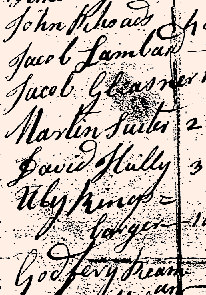 John Rhoads
Jacob Lambar
Jacob Gleasner
Martin Suter 2
David Hully 3
Uly Rings=
barger
Godfery